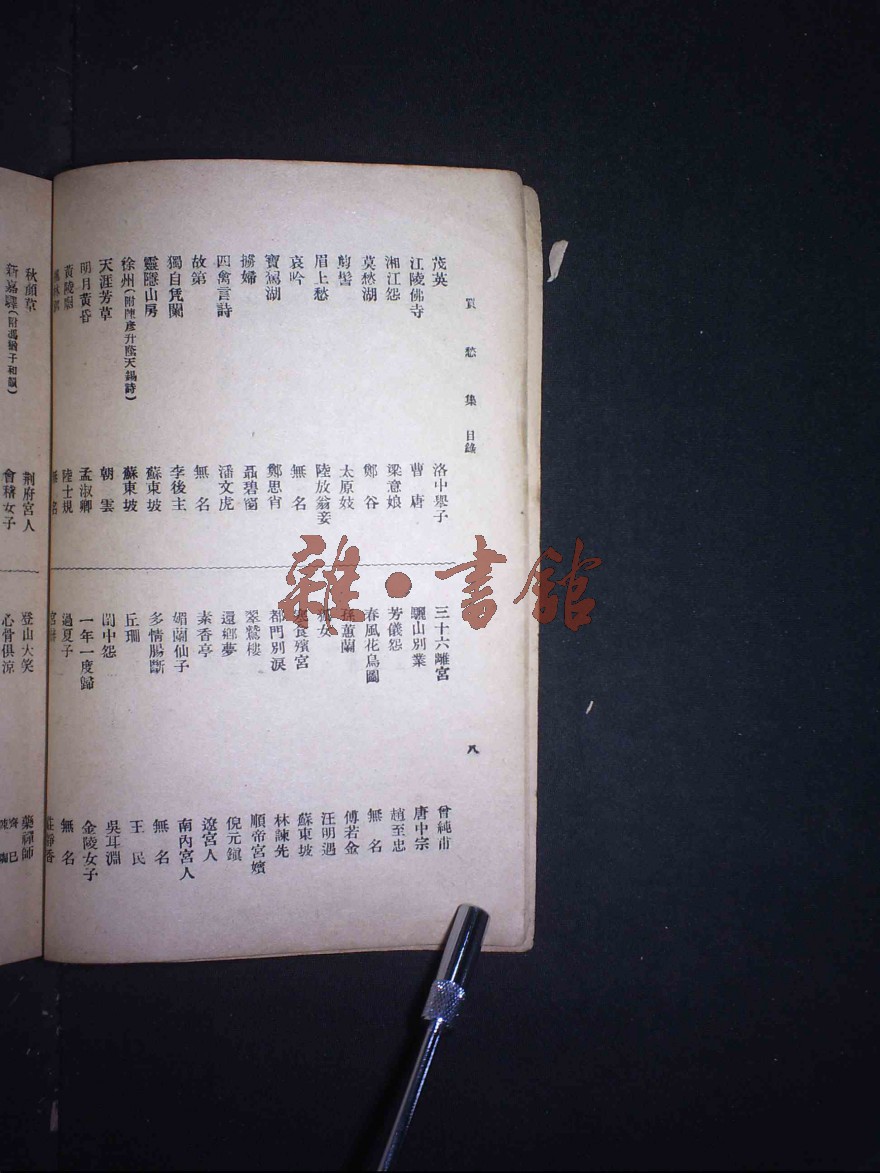 買愁集 目錄
八
茂英 洛中舉子
江陵佛寺 曹唐
湘江怨 梁意娘
莫愁湖 鄭谷
剪髻 太原妓
眉上愁 陸放翁妾
哀吟 無名
寶駕湖 鄭思肖
擄婦 聶碧窗
四禽言詩 潘文虎
故第 無名
獨自凭闌 李後主
靈隱山房 蘇東坡
徐州(附陳彥升薩天錫詩) 蘇東坡
天涯芳草 朝雲
明月黃昏 孟淑卿
黃陵廟 陸士規
無名
三十六離宮 曾純甫
驪山別業 唐中宗
芳儀怨 趙至忠
春風花鳥圖 無名
孫蕙蘭 傅若金
女 汪明遇
寒食殯宮 蘇東坡
都門別淚 林諫先
翠鷲樓 順帝宮嬪
還鄉夢 倪元鎮
素香亭 遼宮人
媚蘭仙子 南內宮人
多情腸斷 無名
丘瓊 王民
閨中怨 吳耳淵
一年一度歸 金陵女子
過夏子 無名
宮 莊靜香
秋顏草 荆府宮人
新嘉驛(附馮猶子和韻) 會稽女子
登山大笑 藥禪師
心骨俱涼 齊己
雜·書館